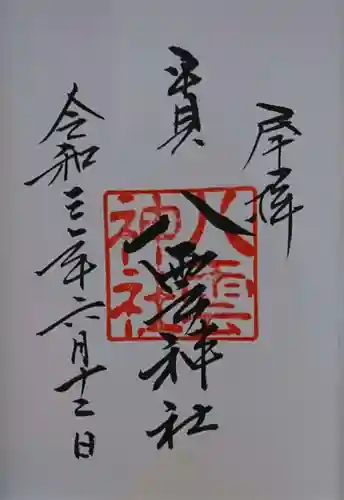 奉拝
貫
八雲神社
八雲神社
令和三年六月十二日